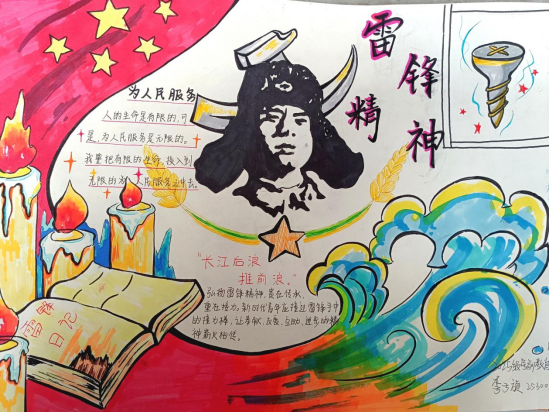 雷锋精神
为人民服务
人的生命是有限的,可
是,为人民服务是无限的。
我要把有限的生命,投入到
无限的为人民服务之中去。
"长江后浪
推前浪。"
弘扬雷锋精神,贵在传承,
重在接力,新时代青年应接过雷锋手中
的接力棒,让奉献、友善、互助、进步的精
神薪火相传。
雷锋日记